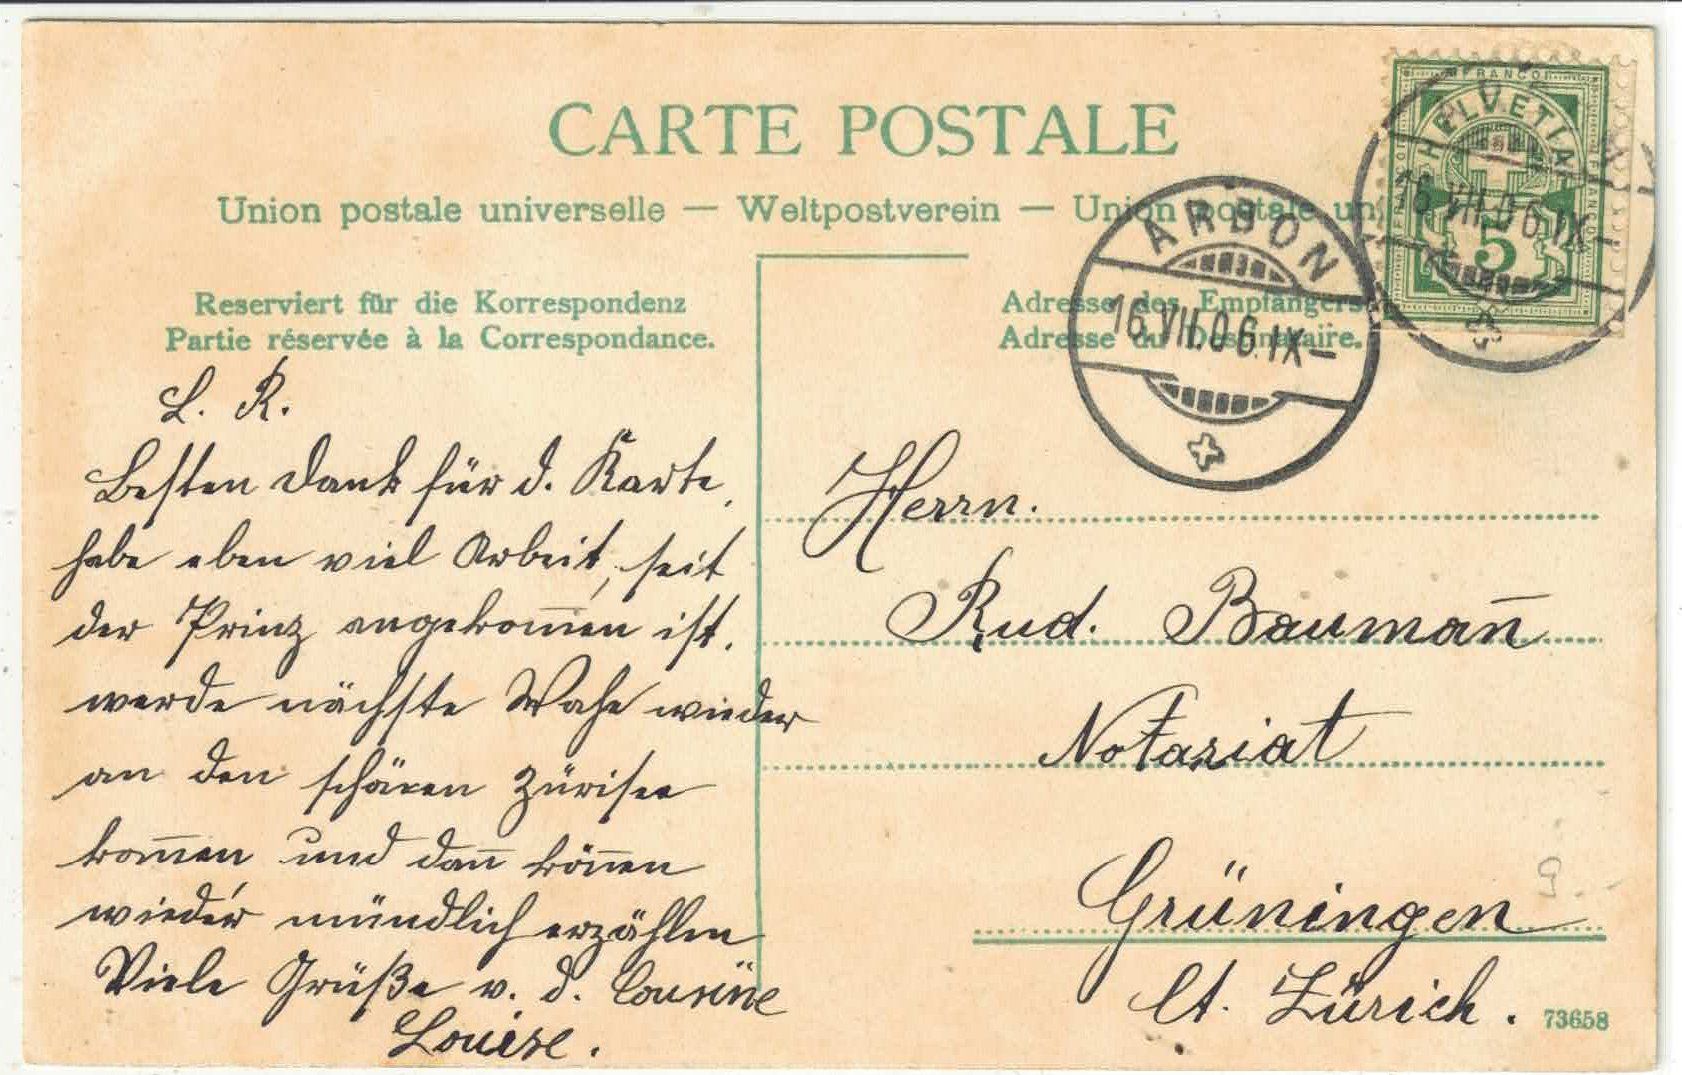 CARTE POSTALE
Union postale universelle — Weltpostverein — Union postale un
Reserviert für die Korrespondenz
Partie réservée à la Correspondance.
Adresse des Empfängers
Adresse du Destinataire.
FRANCO
HELVETIA
5
16.VII.06.IX–
ARBON
16.VII.06.IX–
L. R.
Besten Dank für d. Karte,
habe eben viel Arbeit, seit
der Prinz angekom̄en ist.
werde nächste Wohe wieder
an den schönen Zürisee
kom̄en und dan̄ kön̄en
wieder mündlich erzählen
Viele Grüße v. d. Cousine
Louise.
Herrn.
Rud. Bauman̄
Notariat
Grüningen
Ct. Zürich.
73658